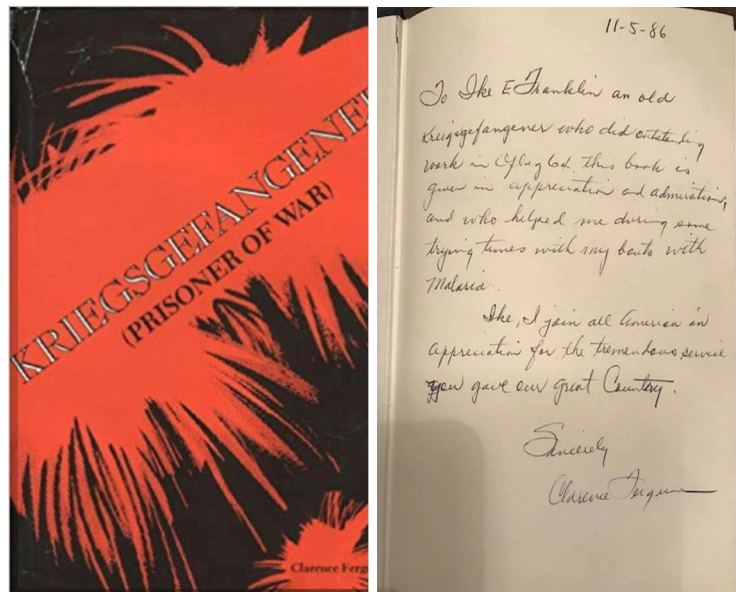 KRIEGSGEFANGENER
(PRISONER OF WAR)
Clarence Fergu
11-5-86
To Ike E Franklin an old
Kreigsgefangener who did outstanding
work in Oflag 64. This book is
given in appreciation and admiration,
and who helped me during some
trying times with my bouts with
Malaria.
Ike, I join all America in
appreciation for the tremendous service
you gave our great Country.
Sincerely
Clarence Ferguson